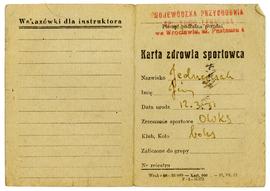 Wskazówki dla instruktora
WOJEWÓDZKA PRZYCHODNIA
we Wrocławiu, ul. Pasteura 4
Karta zdrowia sportowca
Nazwisko
Imię Jerzy
Data urodz. 12.3.31
Zrzeszenie sportowe OWKS
Klub, Koło boks
Zaliczony do grupy
Nr rejestru